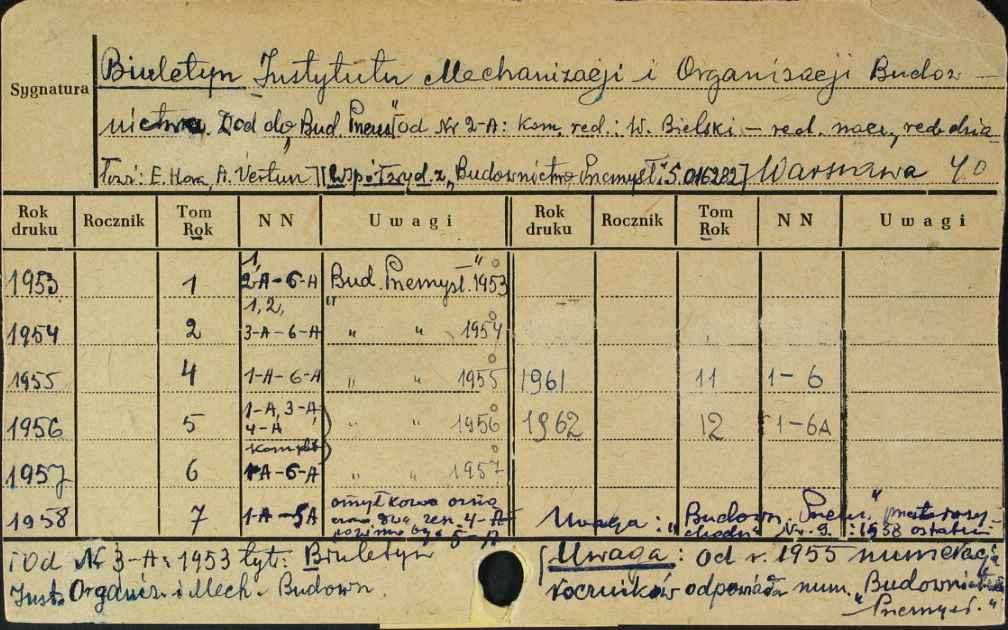 Sygnatura
Biuletyn Instytutu Mechanizacji i Organizacji Budow-
nictwa. Dod do „Bud. Przem" od Nr 2-A: Kom. red.: W. Bielski - red. nacz., red. dzia-
łowi: E. Hora, A. Vertun][Współwyd. z „Budownictwo Przemysł." S. 016282] Warszawa 40
Rok druku Rocznik Tom Rok NN Uwagi Rok druku Rocznik Tom Rok NN Uwagi
1953 1 1, 2-A-6-A Bud. Przemysł." 1953
1954 2 1, 2, 3-A-6-A " " 1954
1955 4 1-A-6-A " " 1955 1961 11 1-6
1956 5 1-A, 3-A, 4-A " " 1956 1962 12 1-6A
komplet
1957 6 1-A-6-A " " 1957
1958 7 1-A-5A omyłkowo 4-A 5-A Uwaga: „Budown. Przem." Nr. 9.: 1958 ostatni
Od Nr 3-A: 1953 tyt. Biuletyn
Inst. Organiz. i Mech. Budown.
Uwaga: od r. 1955 numeracja
roczników odpowiada num. „Budownictwa
Przemysł."